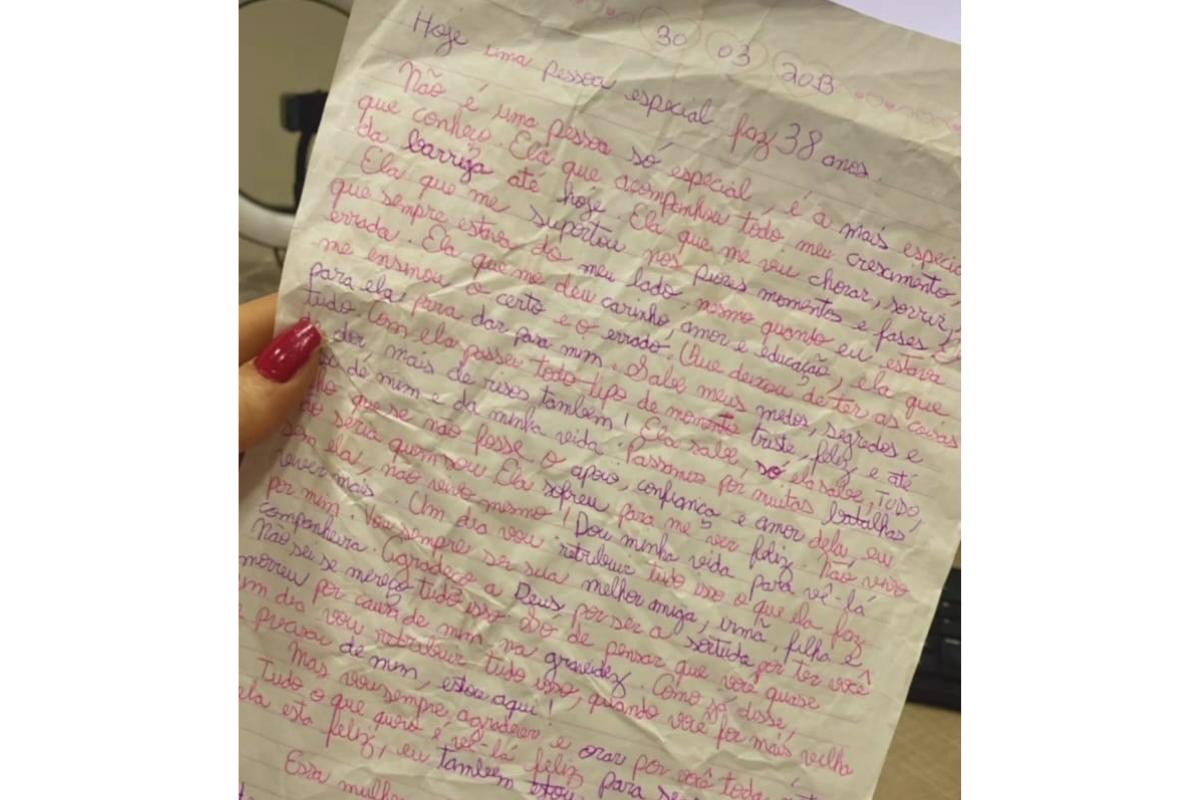 30 03 2013
Hoje uma pessoa especial faz 38 anos.
Não é uma pessoa só especial, é a mais especia
que conheço. Ela que acompanhou todo meu crescimento,
da barriga até hoje. Ela que me viu chorar, sorrir,
Ela que me suportou nos piores momentos e fases
que sempre estava do meu lado, mesmo quando eu estava
errada. Ela que me deu carinho, amor e educação, ela que
me ensinou o certo e o errado. Que deixou de ter as coisas
para ela para dar para mim. Sabe meus medos, segredos e
tudo. Com ela passei todo tipo de momento triste, feliz e até
de dor, mais de risos também! Ela sabe, só ela sabe, TUDO,
de mim e da minha vida. Passamos por muitas batalhas,
que se não fosse o apoio, confiança e amor dela, eu
seria quem sou. Ela sofreu para me ver feliz. Não vivo
sem ela, não vivo mesmo! Dou minha vida para vê-lá
viver mais. Um dia vou retribuir tudo isso o que ela faz
por mim. Vou sempre ser sua melhor amiga, irmã, filha e
companheira. Agradeço a Deus por ser a sortuda por ter você
Não sei se mereço tudo isso só de pensar que você quase
morreu por causa de mim na gravidez. Como já disse,
um dia vou retribuir tudo isso, quando você for mais velha
e precisar de mim, estou aqui!
Mas vou sempre agradecer e orar por você toda
Tudo o que quero é vê-lá feliz
ela esta feliz, eu também estou para
Essa mulher